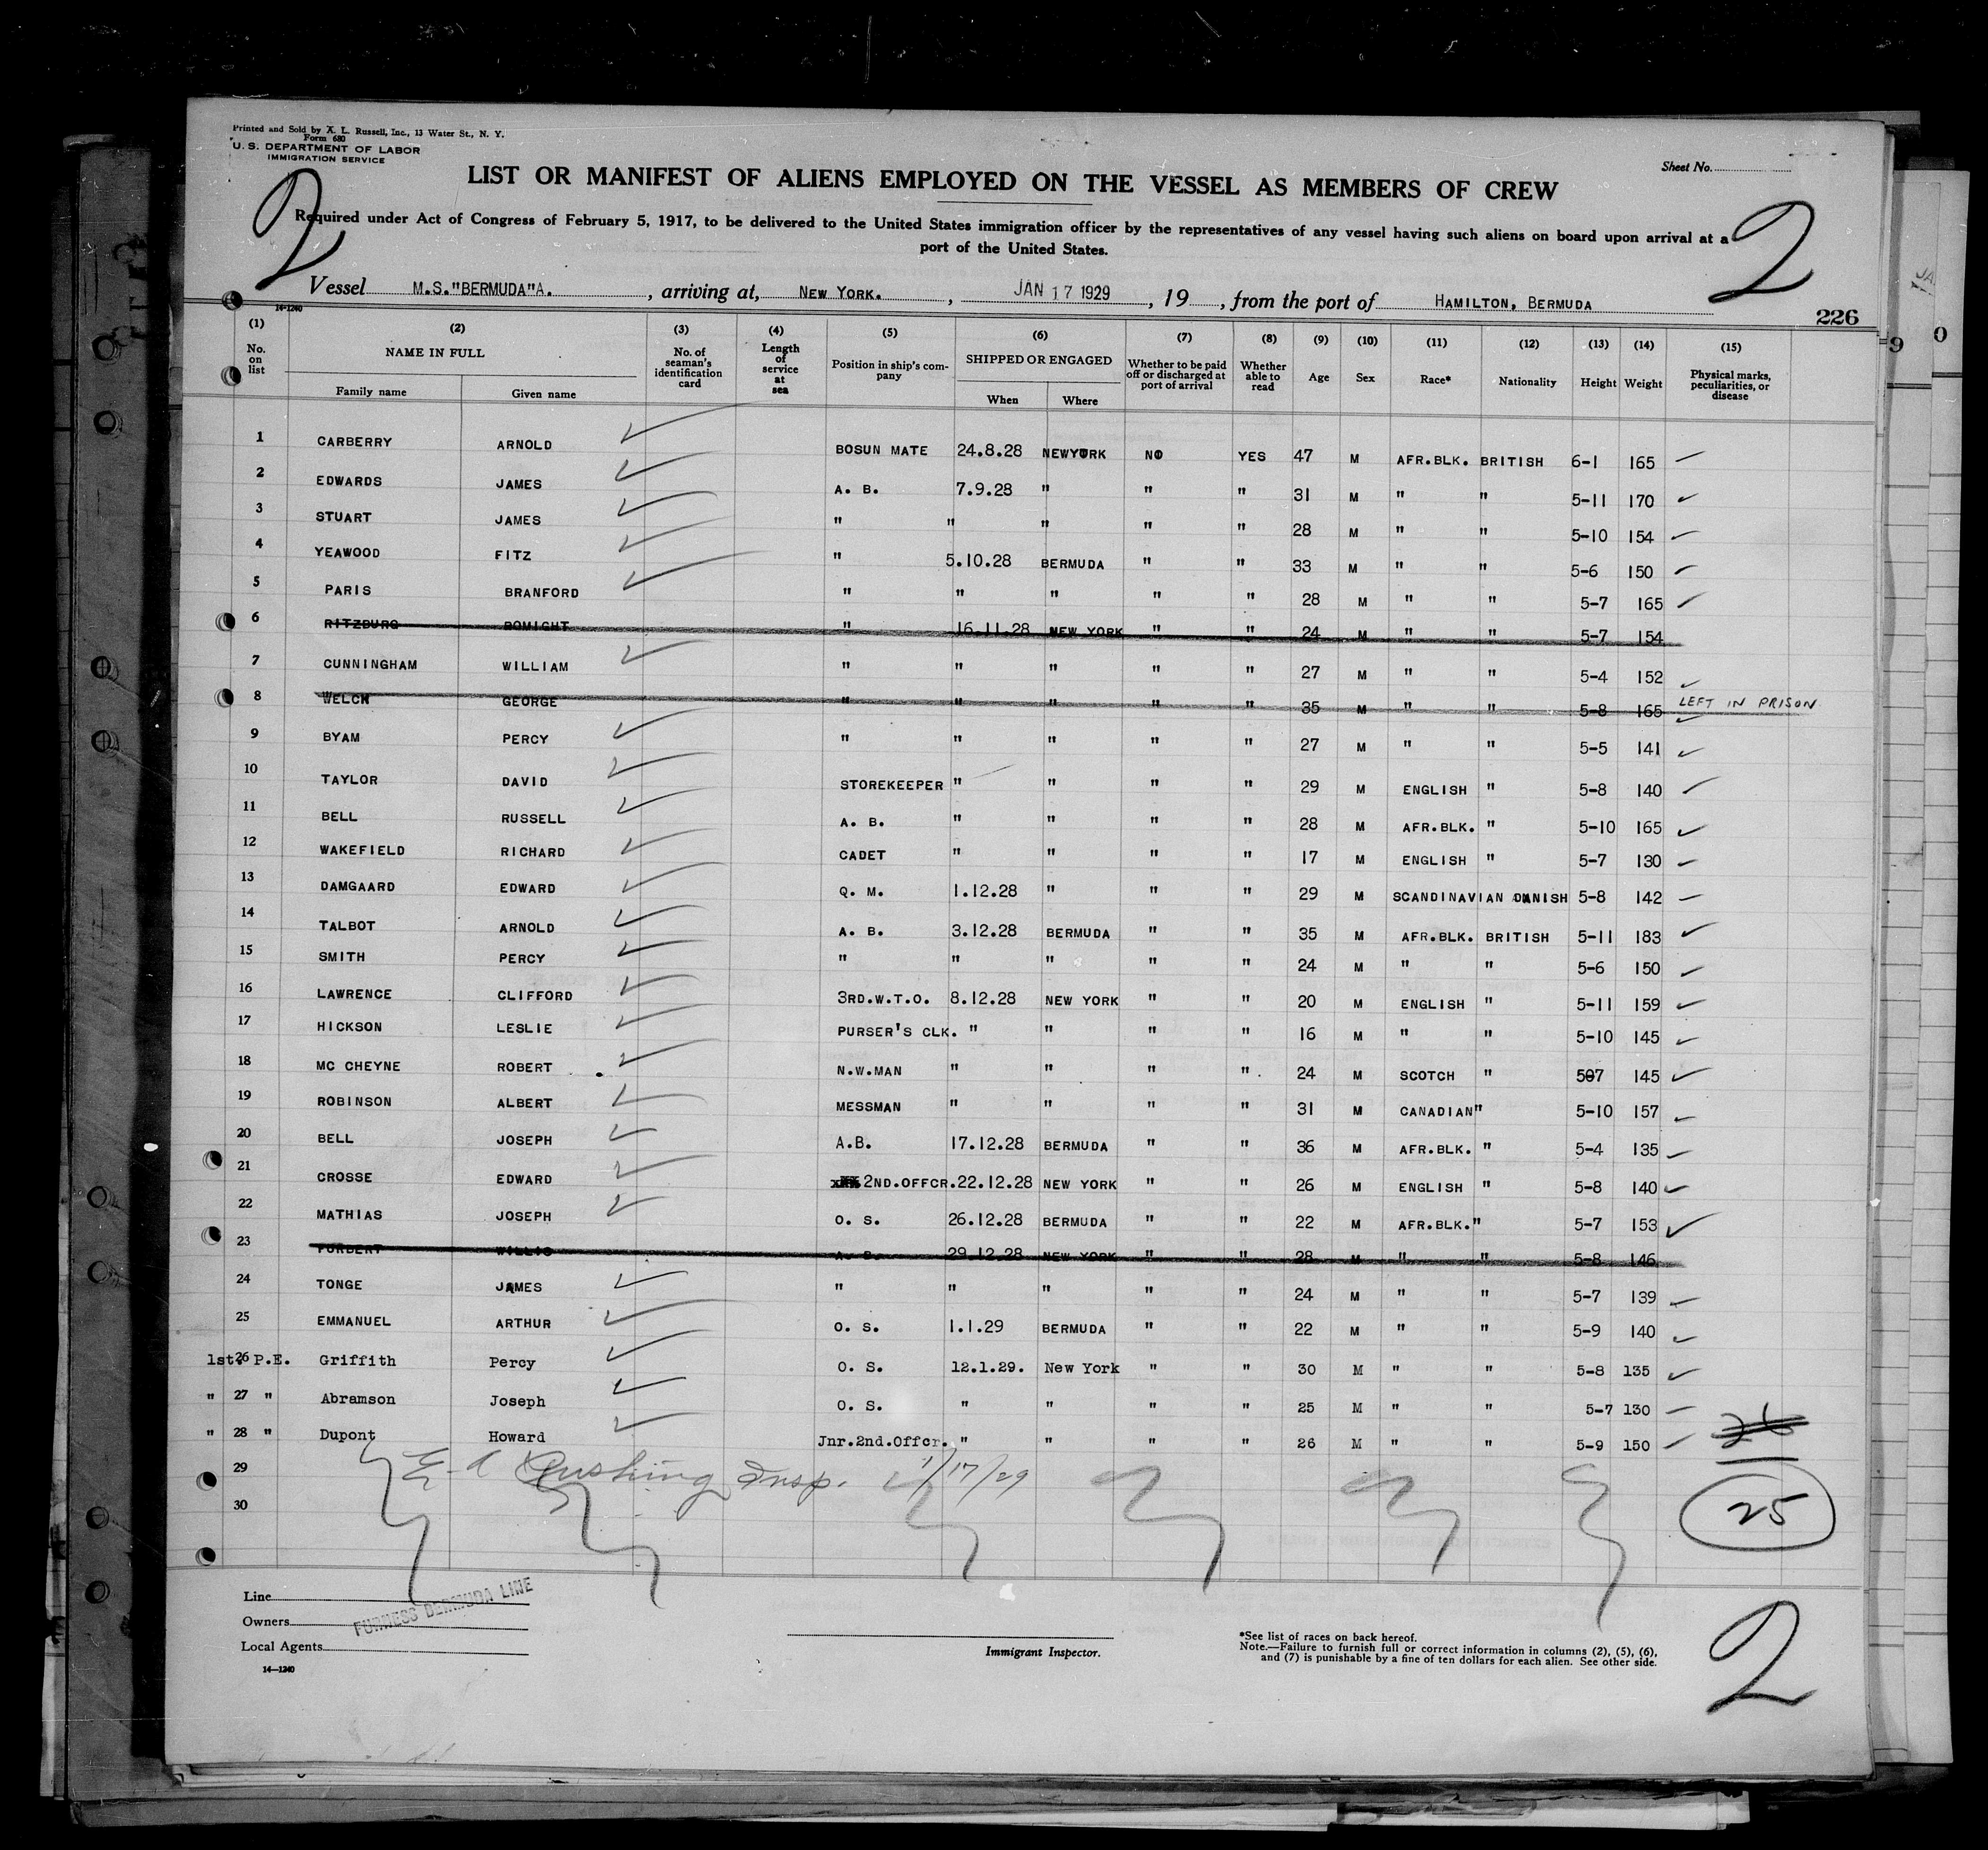 Printed and Sold by A. L. Russell, Inc., 13 Water St., N. Y.
Form 680
U. S. DEPARTMENT OF LABOR
IMMIGRATION SERVICE
Sheet No.
LIST OR MANIFEST OF ALIENS EMPLOYED ON THE VESSEL AS MEMBERS OF CREW
2 2
Required under Act of Congress of February 5, 1917, to be delivered to the United States immigration officer by the representatives of any vessel having such aliens on board upon arrival at a
port of the United States.
Vessel M.S."BERMUDA"A. , arriving at, NEW YORK. , JAN 17 1929 , 19 , from the port of HAMILTON, BERMUDA
14-1240
226
(1) (2) (3) (4) (5) (6) (7) (8) (9) (10) (11) (12) (13) (14) (15)
No. on list NAME IN FULL Family name Given name No. of seaman's identification card Length of service at sea Position in ship's company SHIPPED OR ENGAGED When Where Whether to be paid off or discharged at port of arrival Whether able to read Age Sex Race* Nationality Height Weight Physical marks, peculiarities, or disease
1 CARBERRY ARNOLD BOSUN MATE 24.8.28 NEWYORK NO YES 47 M AFR.BLK. BRITISH 6-1 165
2 EDWARDS JAMES A. B. 7.9.28 " " " 31 M " " 5-11 170
3 STUART JAMES " " " " " 28 M " " 5-10 154
4 YEAWOOD FITZ " 5.10.28 BERMUDA " " 33 M " " 5-6 150
5 PARIS BRANFORD " " " " " 28 M " " 5-7 165
6 RITZBURG DOMIGHT " 16.11.28 NEW YORK " " 24 M " " 5-7 154
7 CUNNINGHAM WILLIAM " " " " " 27 M " " 5-4 152
8 WELCH GEORGE " " " " " 35 M " " 5-8 165 LEFT IN PRISON
9 BYAM PERCY " " " " " 27 M " " 5-5 141
10 TAYLOR DAVID STOREKEEPER " " " " 29 M ENGLISH " 5-8 140
11 BELL RUSSELL A. B. " " " " 28 M AFR.BLK. " 5-10 165
12 WAKEFIELD RICHARD CADET " " " " 17 M ENGLISH " 5-7 130
13 DAMGAARD EDWARD Q. M. 1.12.28 " " " 29 M SCANDINAVIAN DANISH 5-8 142
14 TALBOT ARNOLD A. B. 3.12.28 BERMUDA " " 35 M AFR.BLK. BRITISH 5-11 183
15 SMITH PERCY " " " " " 24 M " " 5-6 150
16 LAWRENCE CLIFFORD 3RD.W.T.O. 8.12.28 NEW YORK " " 20 M ENGLISH " 5-11 159
17 HICKSON LESLIE PURSER'S CLK. " " " " 16 M " " 5-10 145
18 MC CHEYNE ROBERT N.W.MAN " " " " 24 M SCOTCH " 507 145
19 ROBINSON ALBERT MESSMAN " " " " 31 M CANADIAN " 5-10 157
20 BELL JOSEPH A.B. 17.12.28 BERMUDA " " 36 M AFR.BLK. " 5-4 135
21 CROSSE EDWARD 2ND.OFFCR. 22.12.28 NEW YORK " " 26 M ENGLISH " 5-8 140
22 MATHIAS JOSEPH O. S. 26.12.28 BERMUDA " " 22 M AFR.BLK. " 5-7 153
23 FURBERT WILLIS A. B. 29.12.28 NEW YORK " " 28 M " " 5-8 146
24 TONGE JAMES " " " " " 24 M " " 5-7 139
25 EMMANUEL ARTHUR O. S. 1.1.29 BERMUDA " " 22 M " " 5-9 140
1st. 26 P.E. Griffith Percy O. S. 12.1.29. New York " " 30 M " " 5-8 135
" 27 " Abramson Joseph O. S. " " " " 25 M " " 5-7 130
" 28 " Dupont Howard Jnr.2nd.Offcr. " " " " 26 M " " 5-9 150
26
29 E. A Cushing Insp. 1/17/29
30
25
Line
FURNESS BERMUDA LINE
Owners
Local Agents
14-1240
Immigrant Inspector.
*See list of races on back hereof.
Note.—Failure to furnish full or correct information in columns (2), (5), (6),
and (7) is punishable by a fine of ten dollars for each alien. See other side.
2